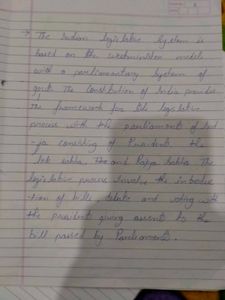 → The Indian legislative system is
based on the westminister model
with a parliamentary system of
govt. The Constitution of India provides
the framework for its legislative
process with the parliament of Ind
-ia consisting of President the
Lok sabha, the and Rajya Sabha. The
legislative process involve the introduc
-tion of bills, debate and voting with
the president giving assent to the
bill passed by Parliament.